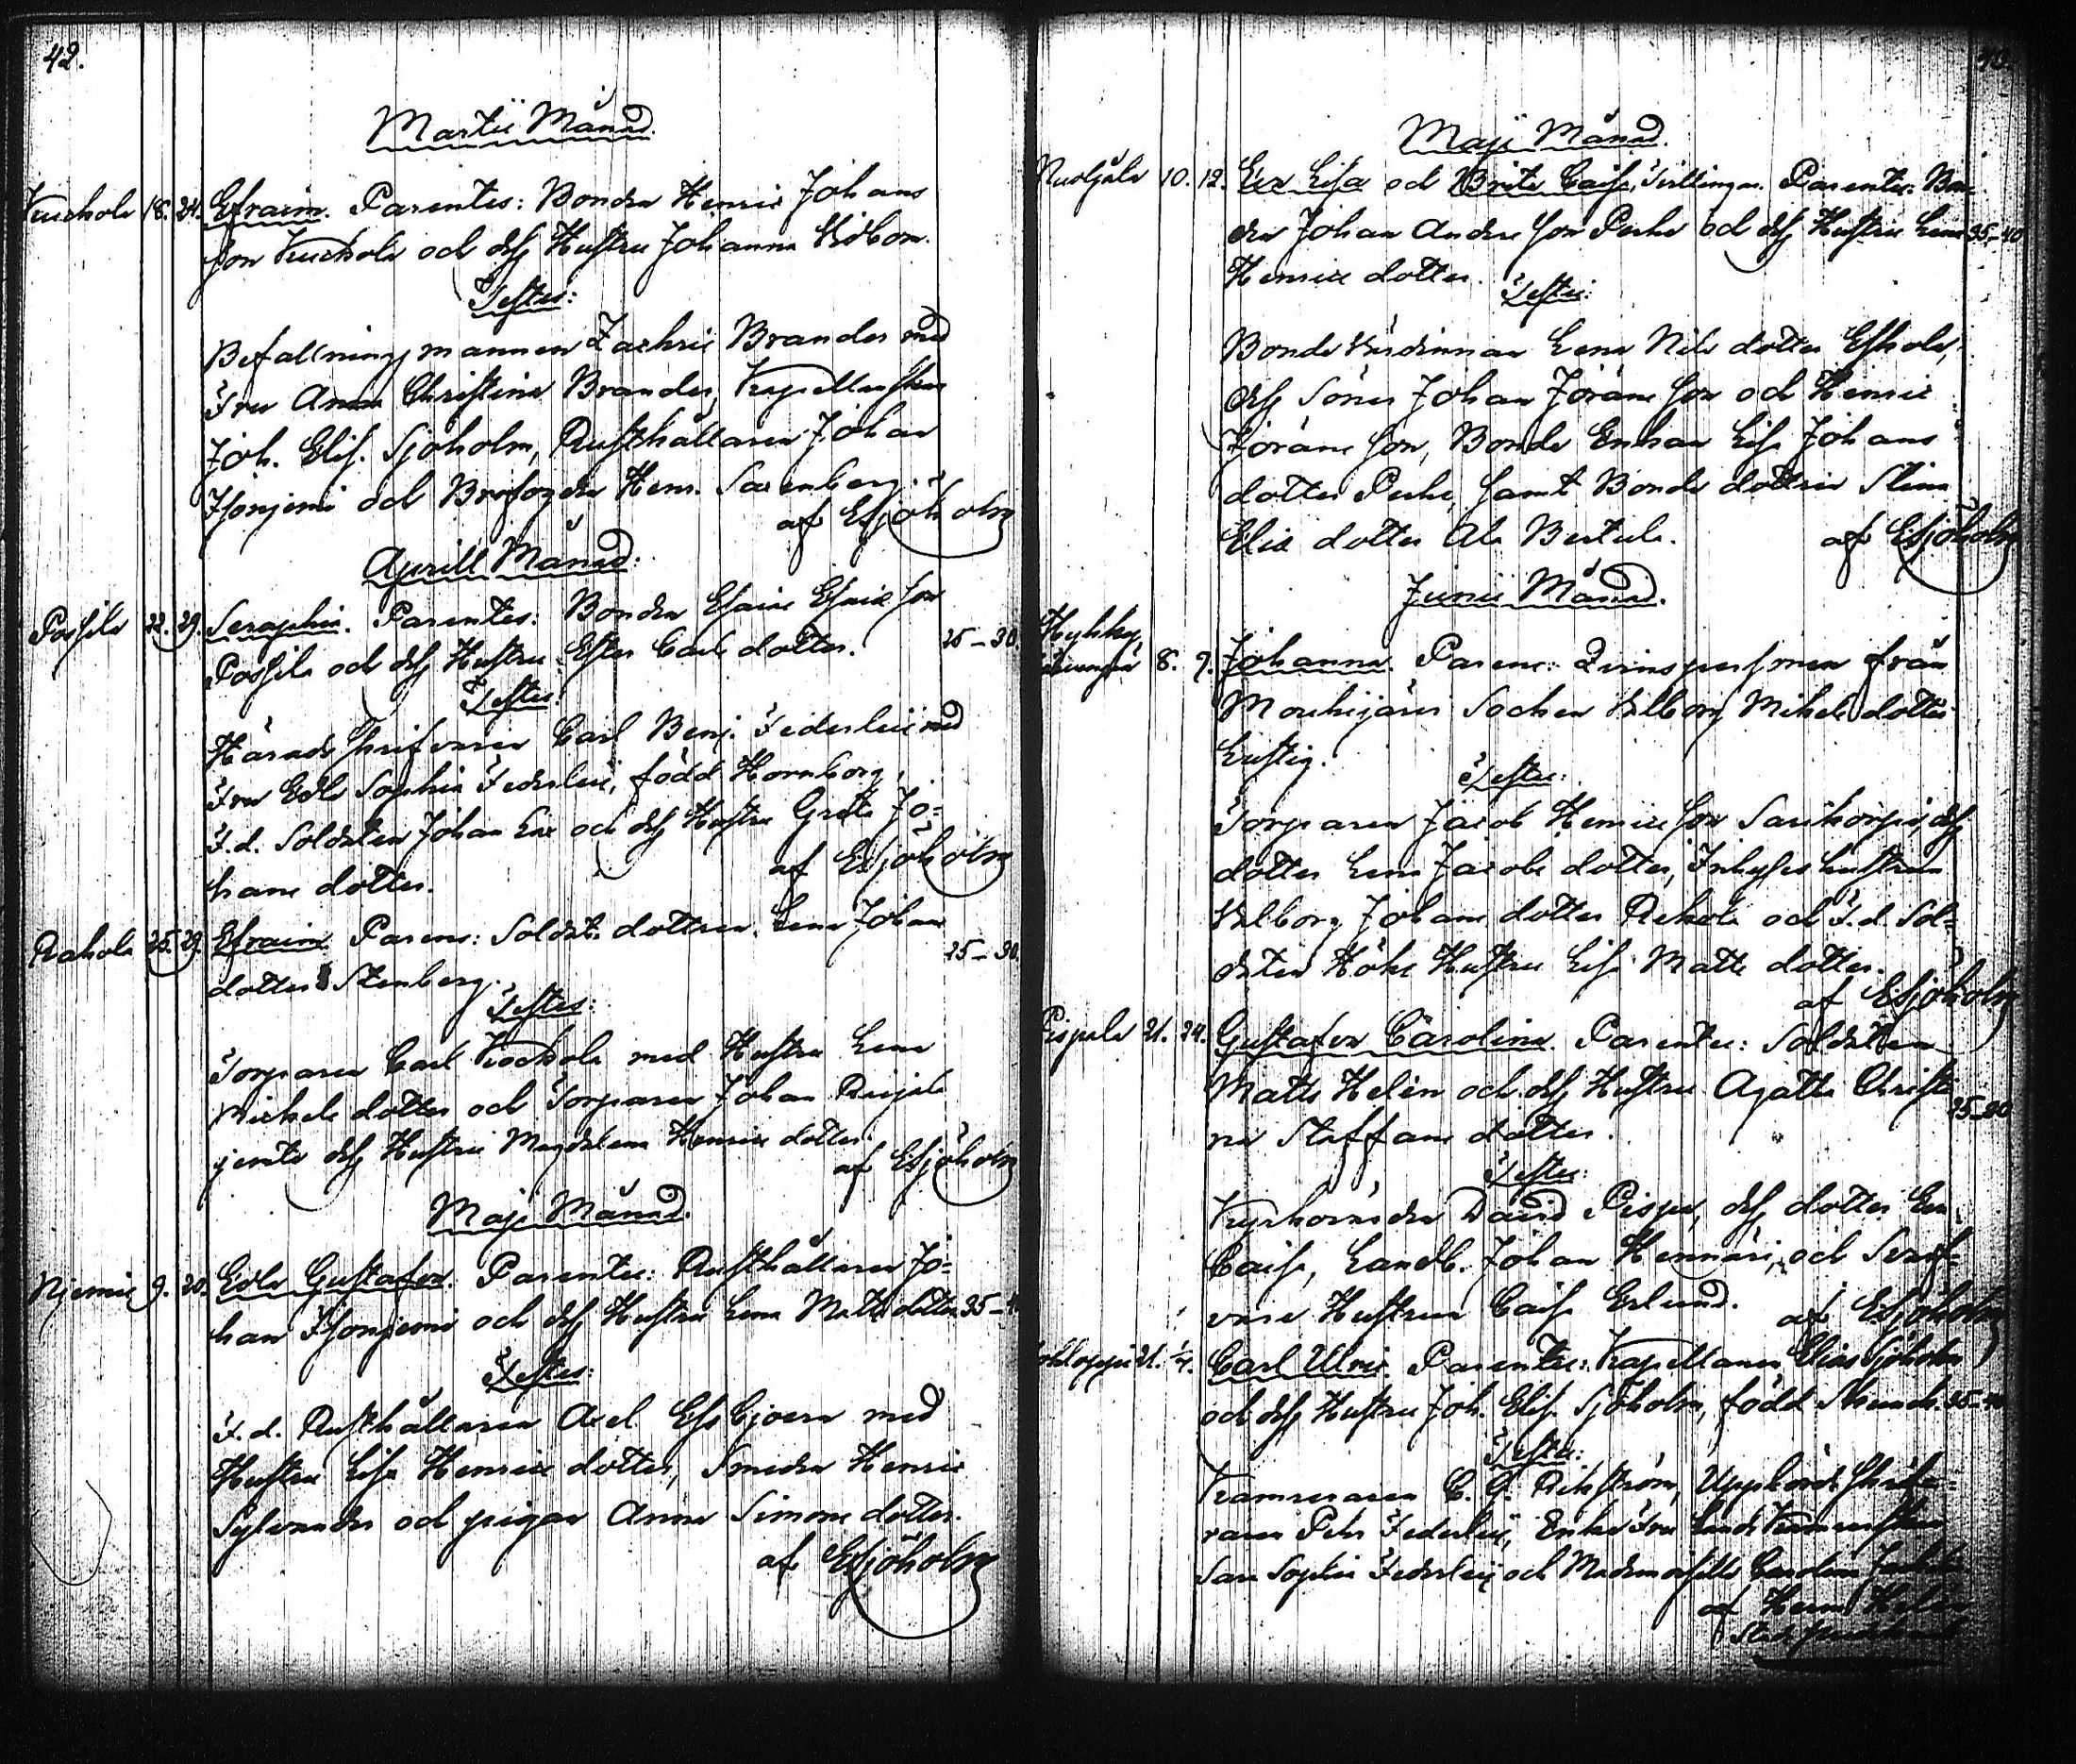 42.
Martii Månad.
Kuckola 18. 24. Efraim. Parentes: Bonden Henric Johans
son Kuckola och dess Hustru Johanna Widbom.
Testes:
Befallningsmannen Zachris Brander med
Fru Anna Christina Brander, Kapellanskan
Joh. Elis. Sjöholm, Rusthållaren Johan
Isonjemi och Brofogden Henr. Sarenberg.
af ESjöholm
Aprill Månad.
Possila 22. 29. Seraphia. Parentes: Bonden Esaias Esaiæ son
Possila och dess Hustru Ester Carls dotter. 25-30.
Testes:
Härads skrifvaren Carl Benj. Federleij med
Fru Edla Sophia Federleij, född Hornborg,
F.d. Soldaten Johan Lax och dess Hustru Greta Jo=
hans dotter. af ESjöholm
Rahola 25. 29. Efraim. Parens: Soldats dottren Lena Johans
dotter Stenberg. 25-30.
Testes:
Torparen Carl Kockola med Hustru Lena
Michels dotter och Torparen Johan
dess Hustru Magdalena Henrics dotter.
af ESjöholm
Maji Månad.
Njemis 9. 20. Edla Gustafva. Parentes: Rusthållaren Jo=
han Isonjemi och dess Hustru Lena Matts dotter 35-
Testes:
F.d. Rusthållaren Axel Essbjoern med
Hustru Lisa Henrics dotter, Smeden Henric
Sylvander och pigan Anna Simons dotter.
af ESjöholm
Maji Månad.
10. 12. Eva Lisa och Brita Caisa, Tvillingar. Parentes: Bon-
den Johan Anders son Perho och dess Hustru Lena 35-40
Henrics dotter.
Testes:
Bonde Värdinnan Lena Nils dotter
dess Söner Johan Jörans son och Henric
Jörans son, Bonde Enkan Lisa Johans
dotter Perho, samt Bonde dottren Stina
Elias dotter Ala Bertula. af ESjöholm
Junii Månad.
8. 9. Johanna. Parens: Qvinspersonen från
Mouhijärvi Sochen Valborg Mikels dotter
Lustig.
Testes:
Torparen Jacob Henrics son Sarikorpi, dess
dotter Lena Jacobs dotter, Inhyses hustrun
Valborg Johans dotter Rahola och F.d. Sol=
daten Höks Hustru Lisa Matts dotter.
af ESjöholm
Pispala 21. 24. Gustafva Carolina. Parentes: Soldaten
Matts Helin och dess Hustru Agatha Christi
na Staffans dotter. 25-30
Testes:
Kyrkovärden David Pispa, dess dotter Eva
Caisa, Landb. Johan Hennäri, och Skref=
vare Hustrun Caisa Eklund. af ESjöholm
21. Carl Ulric. Parentes: Kapellanen Elias Sjöholm
och dess Hustru Joh. Elis. Sjöholm, född 35-40
Testes:
Kamreraren C. G. Rehström, Uppbörds skrif=
varen Pehr Federleij, Enke Fru Lands Kamrerskan
Sara Sophia Federleij och Mademoiselle Carolina
af Henr. Helin